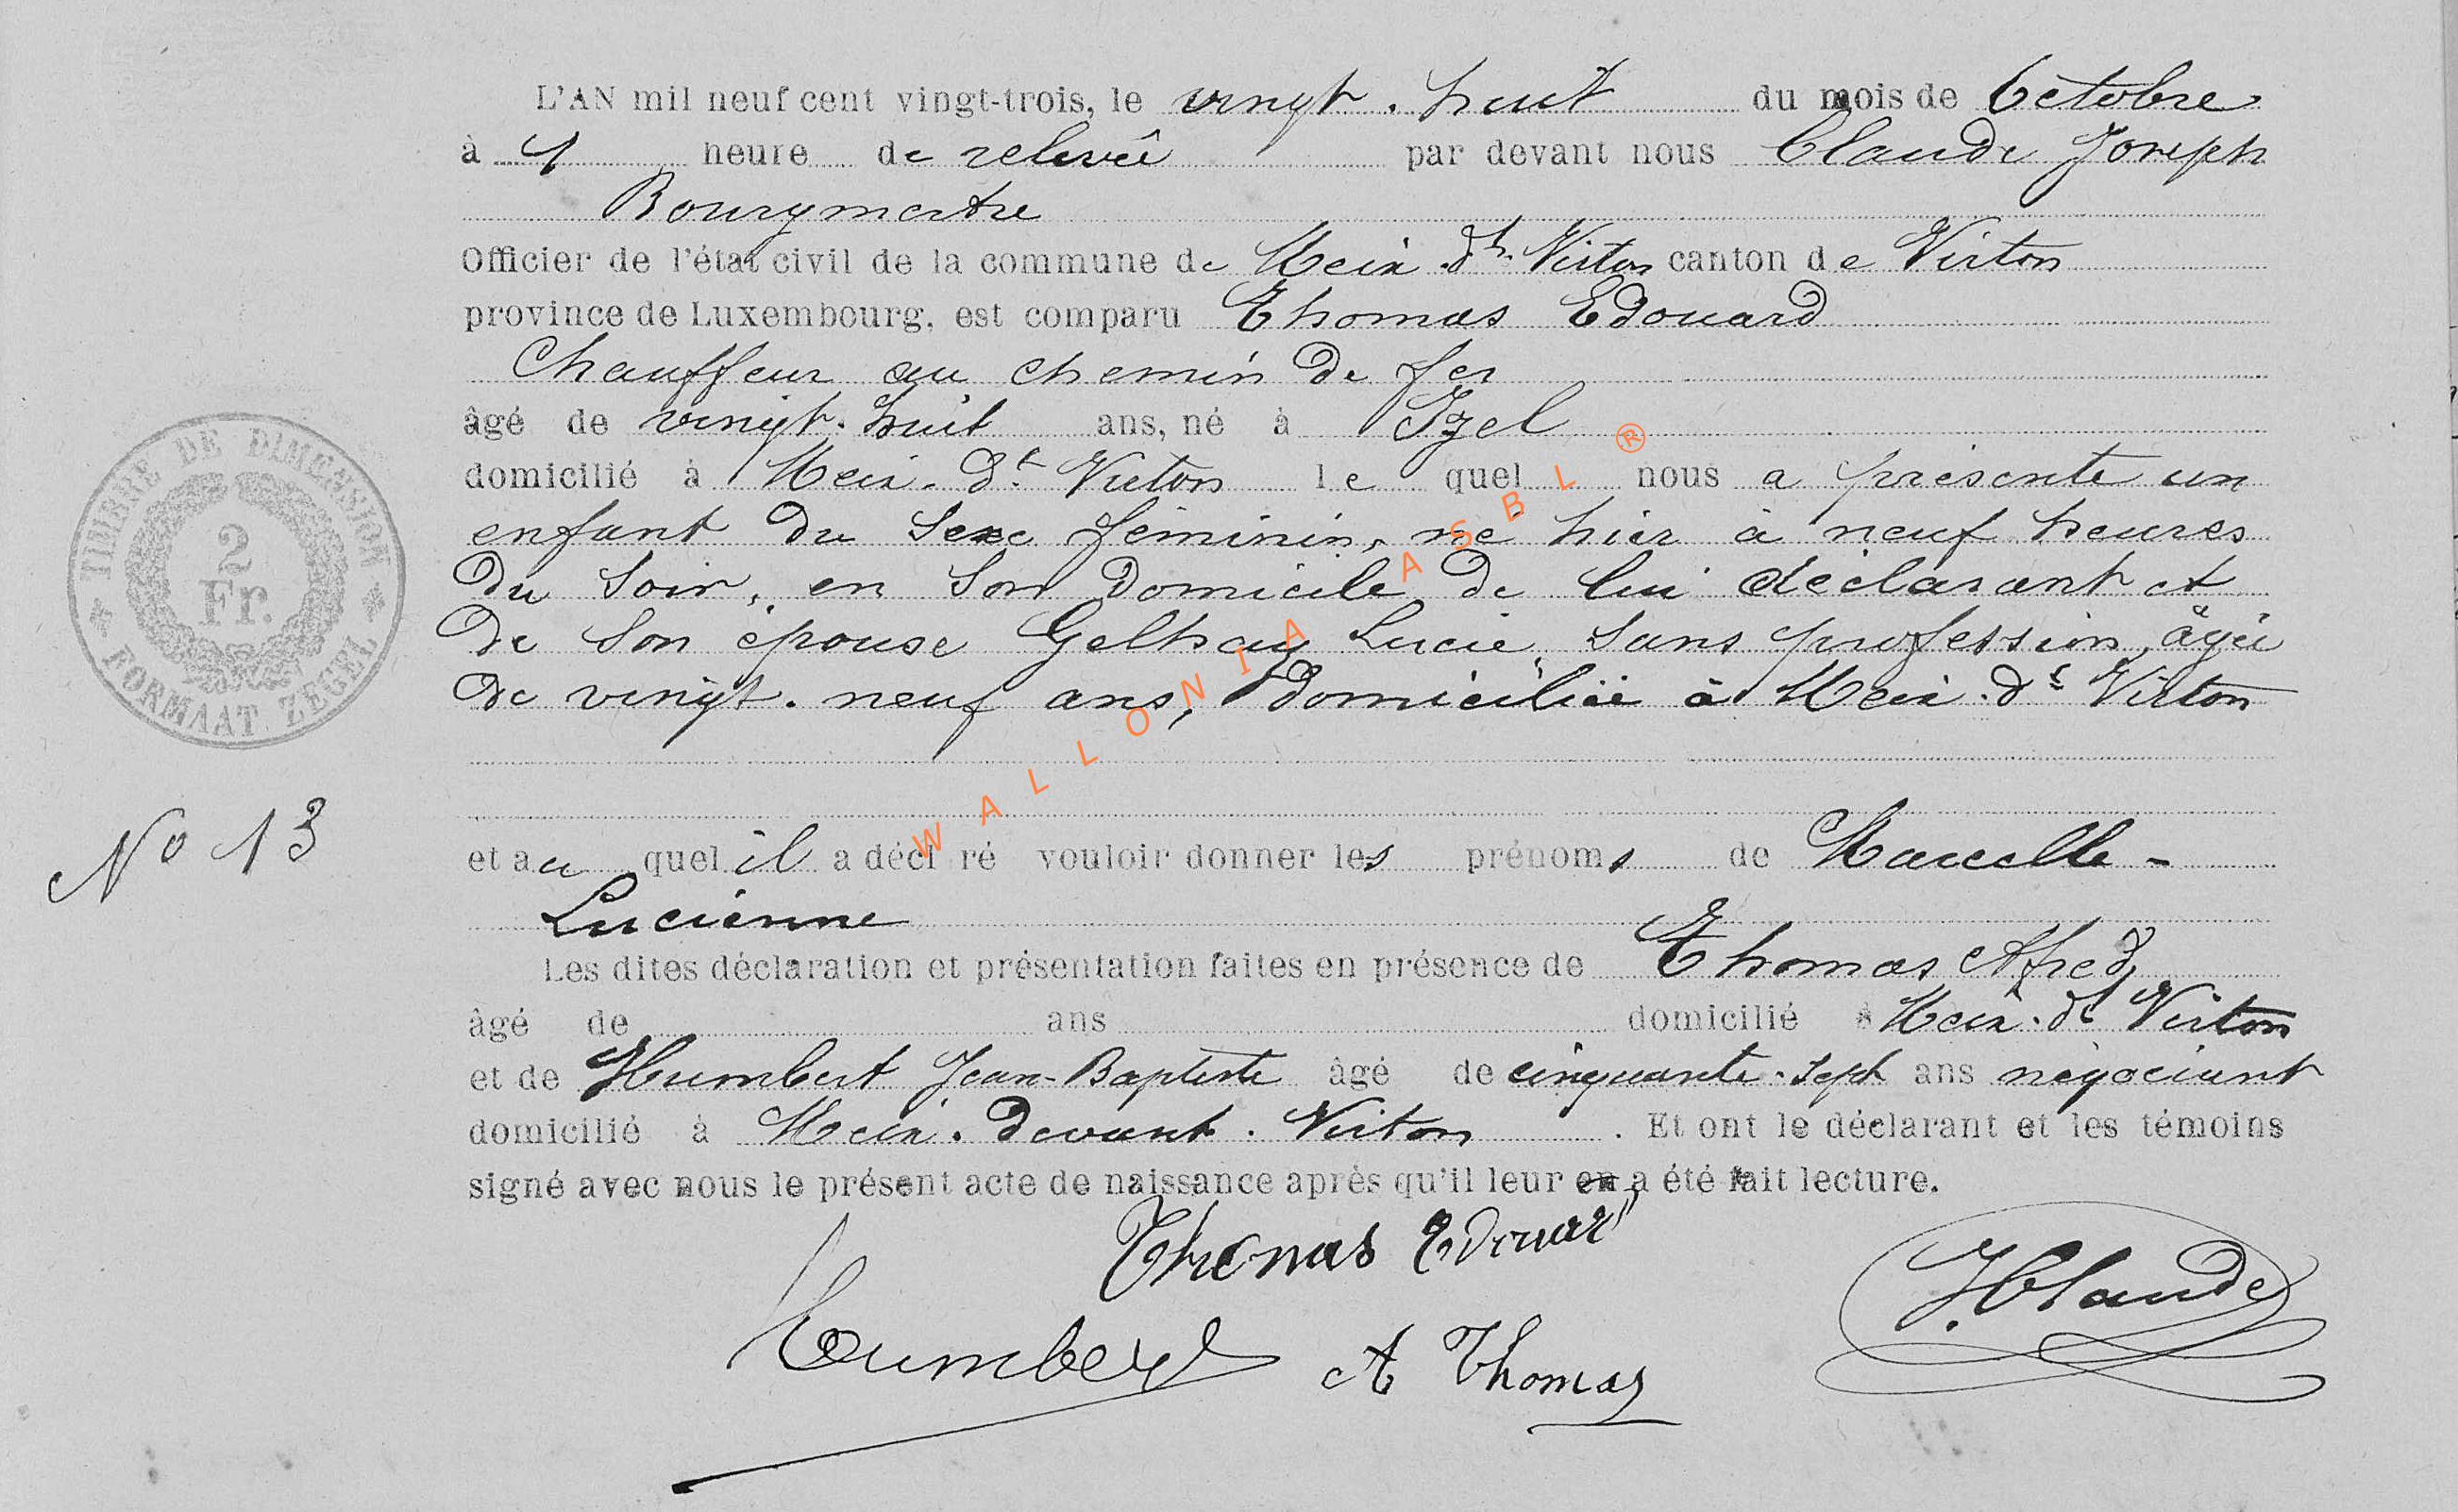 L'AN mil neuf cent vingt-trois, le vingt-huit du mois de Octobre
à 1 heure de relevée par devant nous Claude Joseph
Bourgmestre
Officier de l'état civil de la commune de Meix-dt-Virton canton de Virton
province de Luxembourg, est comparu Thomas Edouard
Chauffeur au chemin de fer
âgé de vingt-huit ans, né à Izel
domicilié à Meix-dt-Virton le quel nous a présenté un
enfant du sexe féminin, né hier à neuf heures
du soir, en son domicile de lui déclarant et
de son épouse Gelhay Lucie, sans profession, âgée
de vingt-neuf ans, domiciliée à Meix-dt-Virton
TIMBRE DE DIMENSION
2
Fr.
FORMAAT ZEGEL
WALLONIA ASBL ®
No 13
et au quel il a décl ré vouloir donner les prénoms de Marcelle -
Lucienne
Les dites déclaration et présentation faites en présence de Thomas Alfred
âgé de ans domicilié à Meix-dt Virton
et de Humbert Jean-Baptiste âgé de cinquante-sept ans négociant
domicilié à Meix-devant-Virton. Et ont le déclarant et les témoins
signé avec nous le présent acte de naissance après qu'il leur en a été fait lecture.
Thomas Edouard
J. Claude
Humbert A Thomas